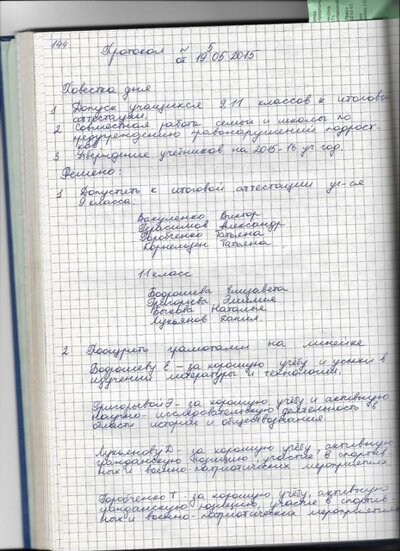 144
Протокол № 5
от 19 05 2015
Повестка дня
1 Допуск учащихся 9.11 классов к итоговой
аттестации.
2 Совместная работа семьи и школы по
предупреждению правонарушений подрост-
ков
3 Утверждение учебников на 2015-16 уч год.
Решено:
1 Допустить к итоговой аттестации уч-ся
9 класса:
Вакуленко Виктор
Герасимов Александр
Горобченко Татьяна
Корнельзен Татьяна
11 класс
Бодрошева Елизавета
Григорьева Эмилия
Быкова Наталья
Лукьянов Данил.
2 Поощрить грамотами на линейке
Бодрошеву Е. - за хорошую учёбу и успехи в
изучении литературы и технологии.
Григорьевой Э - за хорошую учёбу и активную
научно-исследовательскую деятельность в
области истории и обществознания.
Лукьянову Д - за хорошую учёбу, активную
гражданскую позицию, участие в спортив
ных и военно-патриотических мероприятиях
Горобченко Т - за хорошую учёбу, активную
гражданскую позицию, участие в спортив
ных и военно-патриотических мероприятиях